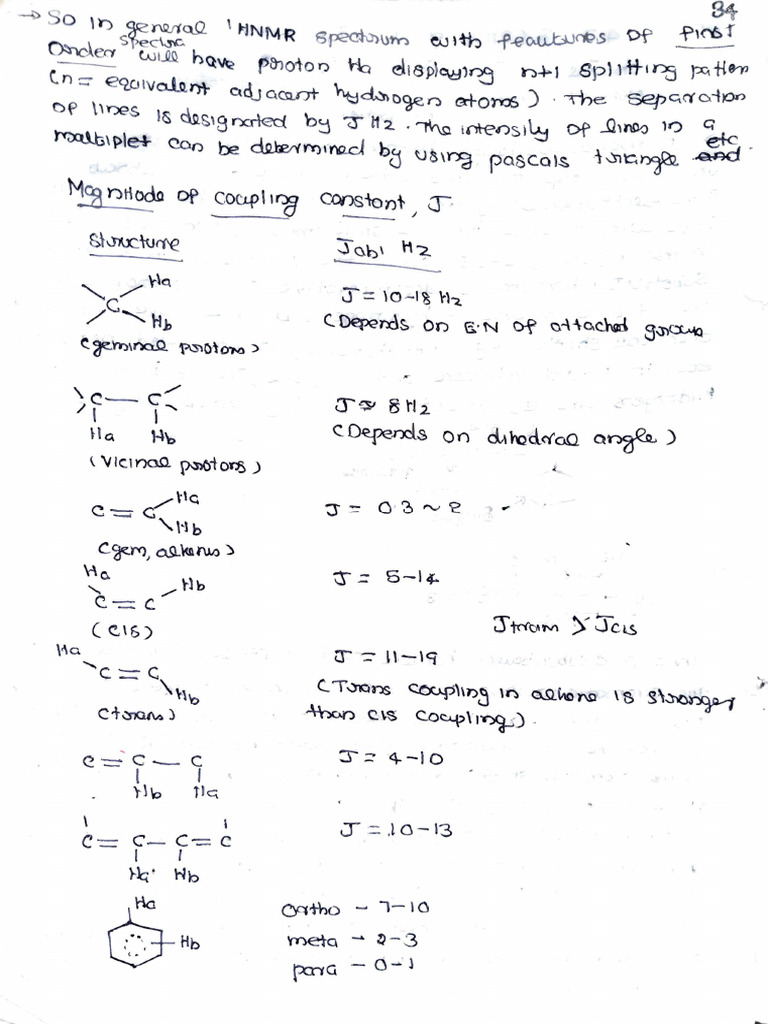 34
→ So in general ¹HNMR spectrum with feautures of first
Order spectra will have proton Ha displaying n+1 splitting patten
(n = equivalent adjacent hydrogen atoms). The separation
of lines is designated by J Hz. The intensity of lines in a
multiplet can be determined by using pascals triangle and etc
Magnitude of coupling constant, J
Structure Jab, Hz
C Ha Hb J = 10-18 Hz
(geminal protons) (Depends on E.N of attached group
C — C Ha Hb J ≈ 8 Hz
(Vicinal protons) (Depends on dihedral angle)
C = C Ha Hb J = 0.3 ~ 2
(gem, alkenes)
Ha C = C Hb J = 5-14
(cis) Jtrans > Jcis
Ha C = C Hb J = 11-19
(trans) (Trans coupling in alkene is stronger
than cis coupling).
C = C — C J = 4-10
Hb Ha
C = C — C = C J = 10-13
Ha Hb
Ha ortho - 7-10
Hb meta - 2-3
para - 0-1